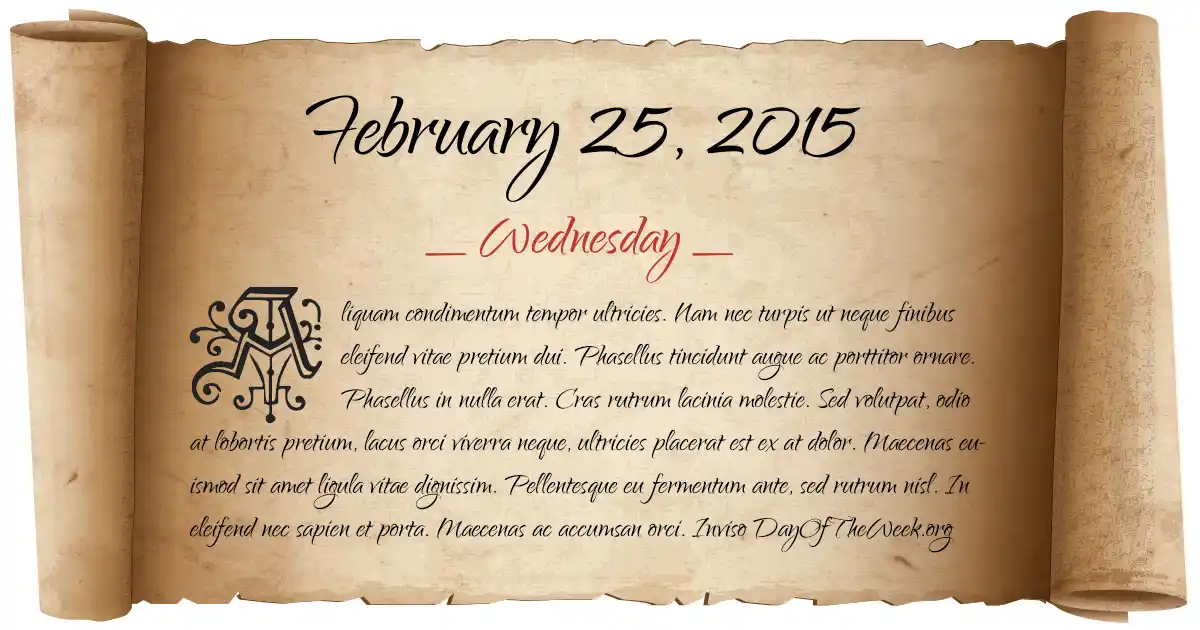 February 25, 2015
Wednesday
Aliquam condimentum tempor ultricies. Nam nec turpis ut neque finibus
eleifend vitae pretium dui. Phasellus tincidunt augue ac porttitor ornare.
Phasellus in nulla erat. Cras rutrum lacinia molestie. Sed volutpat, odio
at lobortis pretium, lacus orci viverra neque, ultricies placerat est ex at dolor. Maecenas eu-
ismod sit amet ligula vitae dignissim. Pellentesque eu fermentum ante, sed rutrum nisl. In
eleifend nec sapien et porta. Maecenas ac accumsan orci. Inviso DayOfTheWeek.org